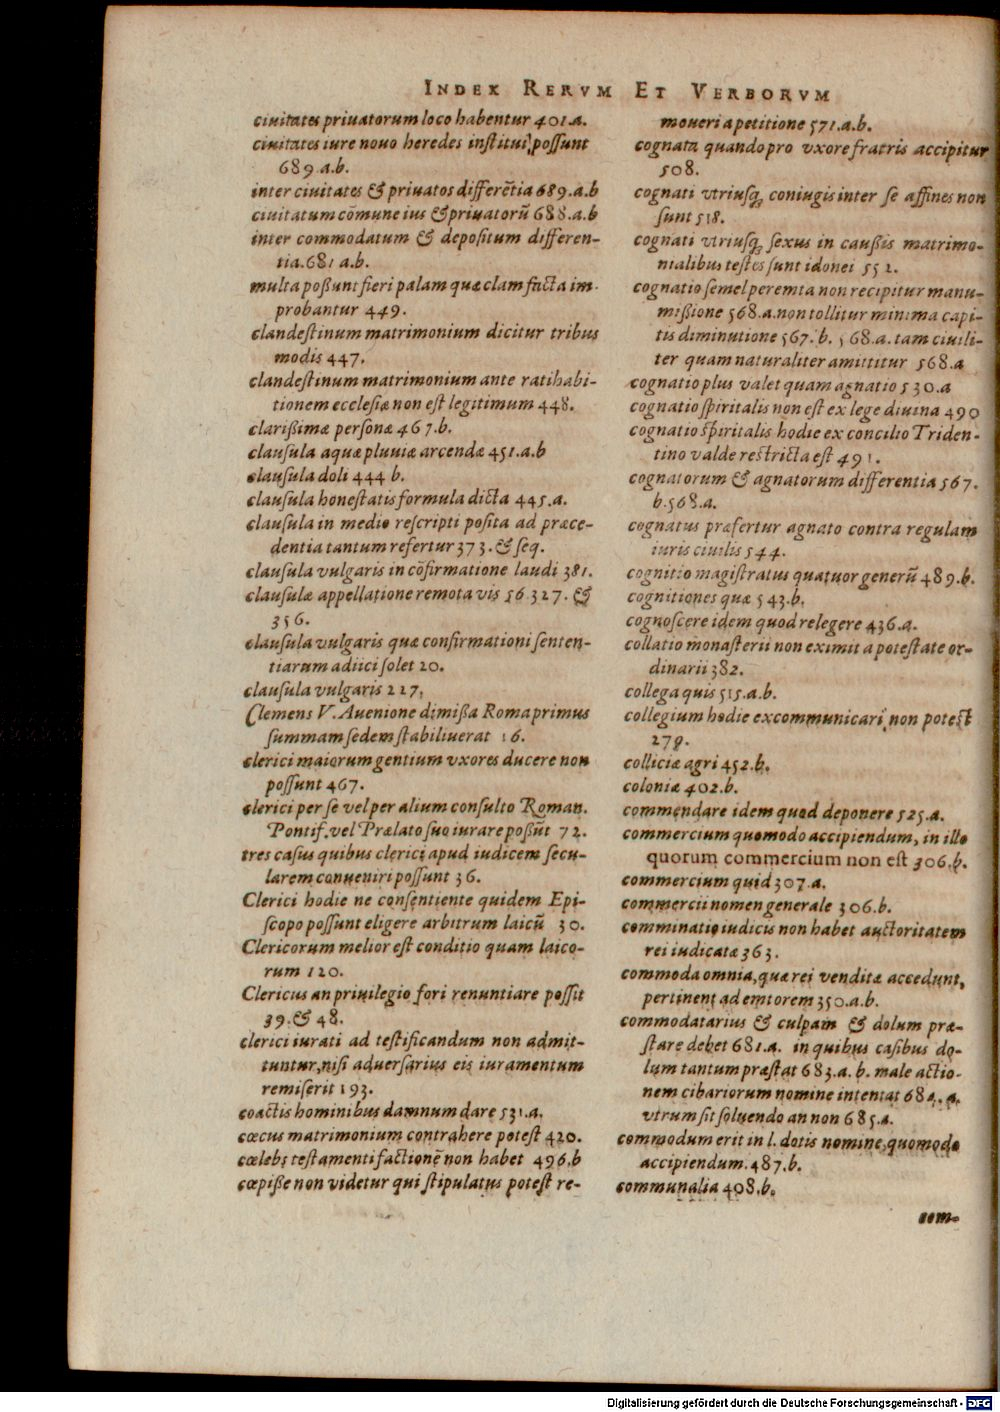 INDEX RERVM ET VERBORVM
ciuitates priuatorum loco habentur 401.a.
ciuitates iure nouo heredes institui possunt
689.a.b.
inter ciuitates & priuatos differētia 689.a.b
ciuitatum cōmune ius & priuatorū 688.a.b
inter commodatum & depositum differen-
tia.681 a.b.
multa poßunt fieri palam quæ clam facta im-
probantur 449.
clandestinum matrimonium dicitur tribus
modis 447.
clandestinum matrimonium ante ratihabi-
tionem ecclesiæ non est legitimum 448.
clarißimæ personæ 467.b.
clausula aquæ pluuiæ arcendæ 451.a.b
clausula doli 444 b.
clausula honestatis formula dicta 445.a.
clausula in medio rescripti posita ad præce-
dentia tantum refertur 373. & seq.
clausula vulgaris in cōfirmatione laudi 381.
clausulæ appellatione remota vis 56.327. &
356.
clausula vulgaris quæ confirmationi senten-
tiarum adiici solet 20.
clausula vulgaris 227.
Clemens V. Auenione dimißa Roma primus
summam sedem stabiliuerat 16.
clerici maiorum gentium vxores ducere non
possunt 467.
clerici per se vel per alium consulto Roman.
Pontif. vel Prælato suo iurare poßūt 72.
tres casus quibus clerici apud iudicem secu-
larem conueniri possunt 36.
Clerici hodie ne consentiente quidem Epi-
scopo possunt eligere arbitrum laicū 30.
Clericorum melior est conditio quam laico-
rum 120.
Clericus an priuilegio fori renuntiare possit
39. & 48.
clerici iurati ad testificandum non admit-
tuntur, nisi aduersarius eis iuramentum
remiserit 193.
coactis hominibus damnum dare 531.a.
cœcus matrimonium contrahere potest 420.
cœlebs testamenti factionē non habet 496.b
cœpiße non videtur qui stipulatus potest re-
moueri a petitione 571.a.b.
cognata quando pro vxore fratris accipitur
508.
cognati vtriusq; coniugis inter se affines non
sunt 518.
cognati vtriusq; sexus in caußis matrimo-
nialibus testes sunt idonei 552.
cognatio semel peremta non recipitur manu-
mißione 568.a.non tollitur minima capi-
tis diminutione 567.b. 568.a. tam ciuili-
ter quam naturaliter amittitur 568.a
cognatio plus valet quam agnatio 530.a
cognatio spiritalis non est ex lege diuina 490
cognatio spiritalis hodie ex concilio Triden-
tino valde restricta est 491.
cognatorum & agnatorum differentia 567.
b.568.a.
cognatus præfertur agnato contra regulam
iuris ciuilis 544.
cognitio magistratus quatuor generū 489.b.
cognitiones quæ 543.b.
cognoscere idem quod relegere 436.a.
collatio monasterii non eximit a potestate or-
dinarii 382.
collega quis 515.a.b.
collegium hodie excommunicari non potest
279.
colliciæ agri 452.b.
coloniæ 402.b.
commendare idem quod deponere 525.a.
commercium quomodo accipiendum, in illo
quorum commercium non est 306.b.
commercium quid 307.a.
commercii nomen generale 306.b.
comminatio iudicis non habet auctoritatem
rei iudicatæ 363.
commoda omnia, quæ rei venditæ accedunt,
pertinent ad emtorem 350.a.b.
commodatarius & culpam & dolum præ-
stare debet 681.a. in quibus casibus do-
lum tantum præstat 683.a. b. male actio-
nem cibariorum nomine intentat 684. a.
vtrum sit soluendo an non 685.a.
commodum erit in l. dotis nomine, quomodo
accipiendum.487.b.
communalia 408.b.
com-
Digitalisierung gefördert durch die Deutsche Forschungsgemeinschaft - DFG